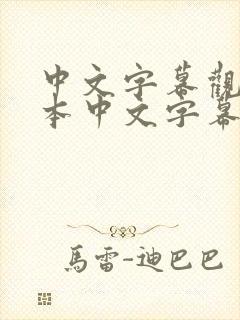 中文字幕觀
本中文字幕
馬雷-迪巴巴